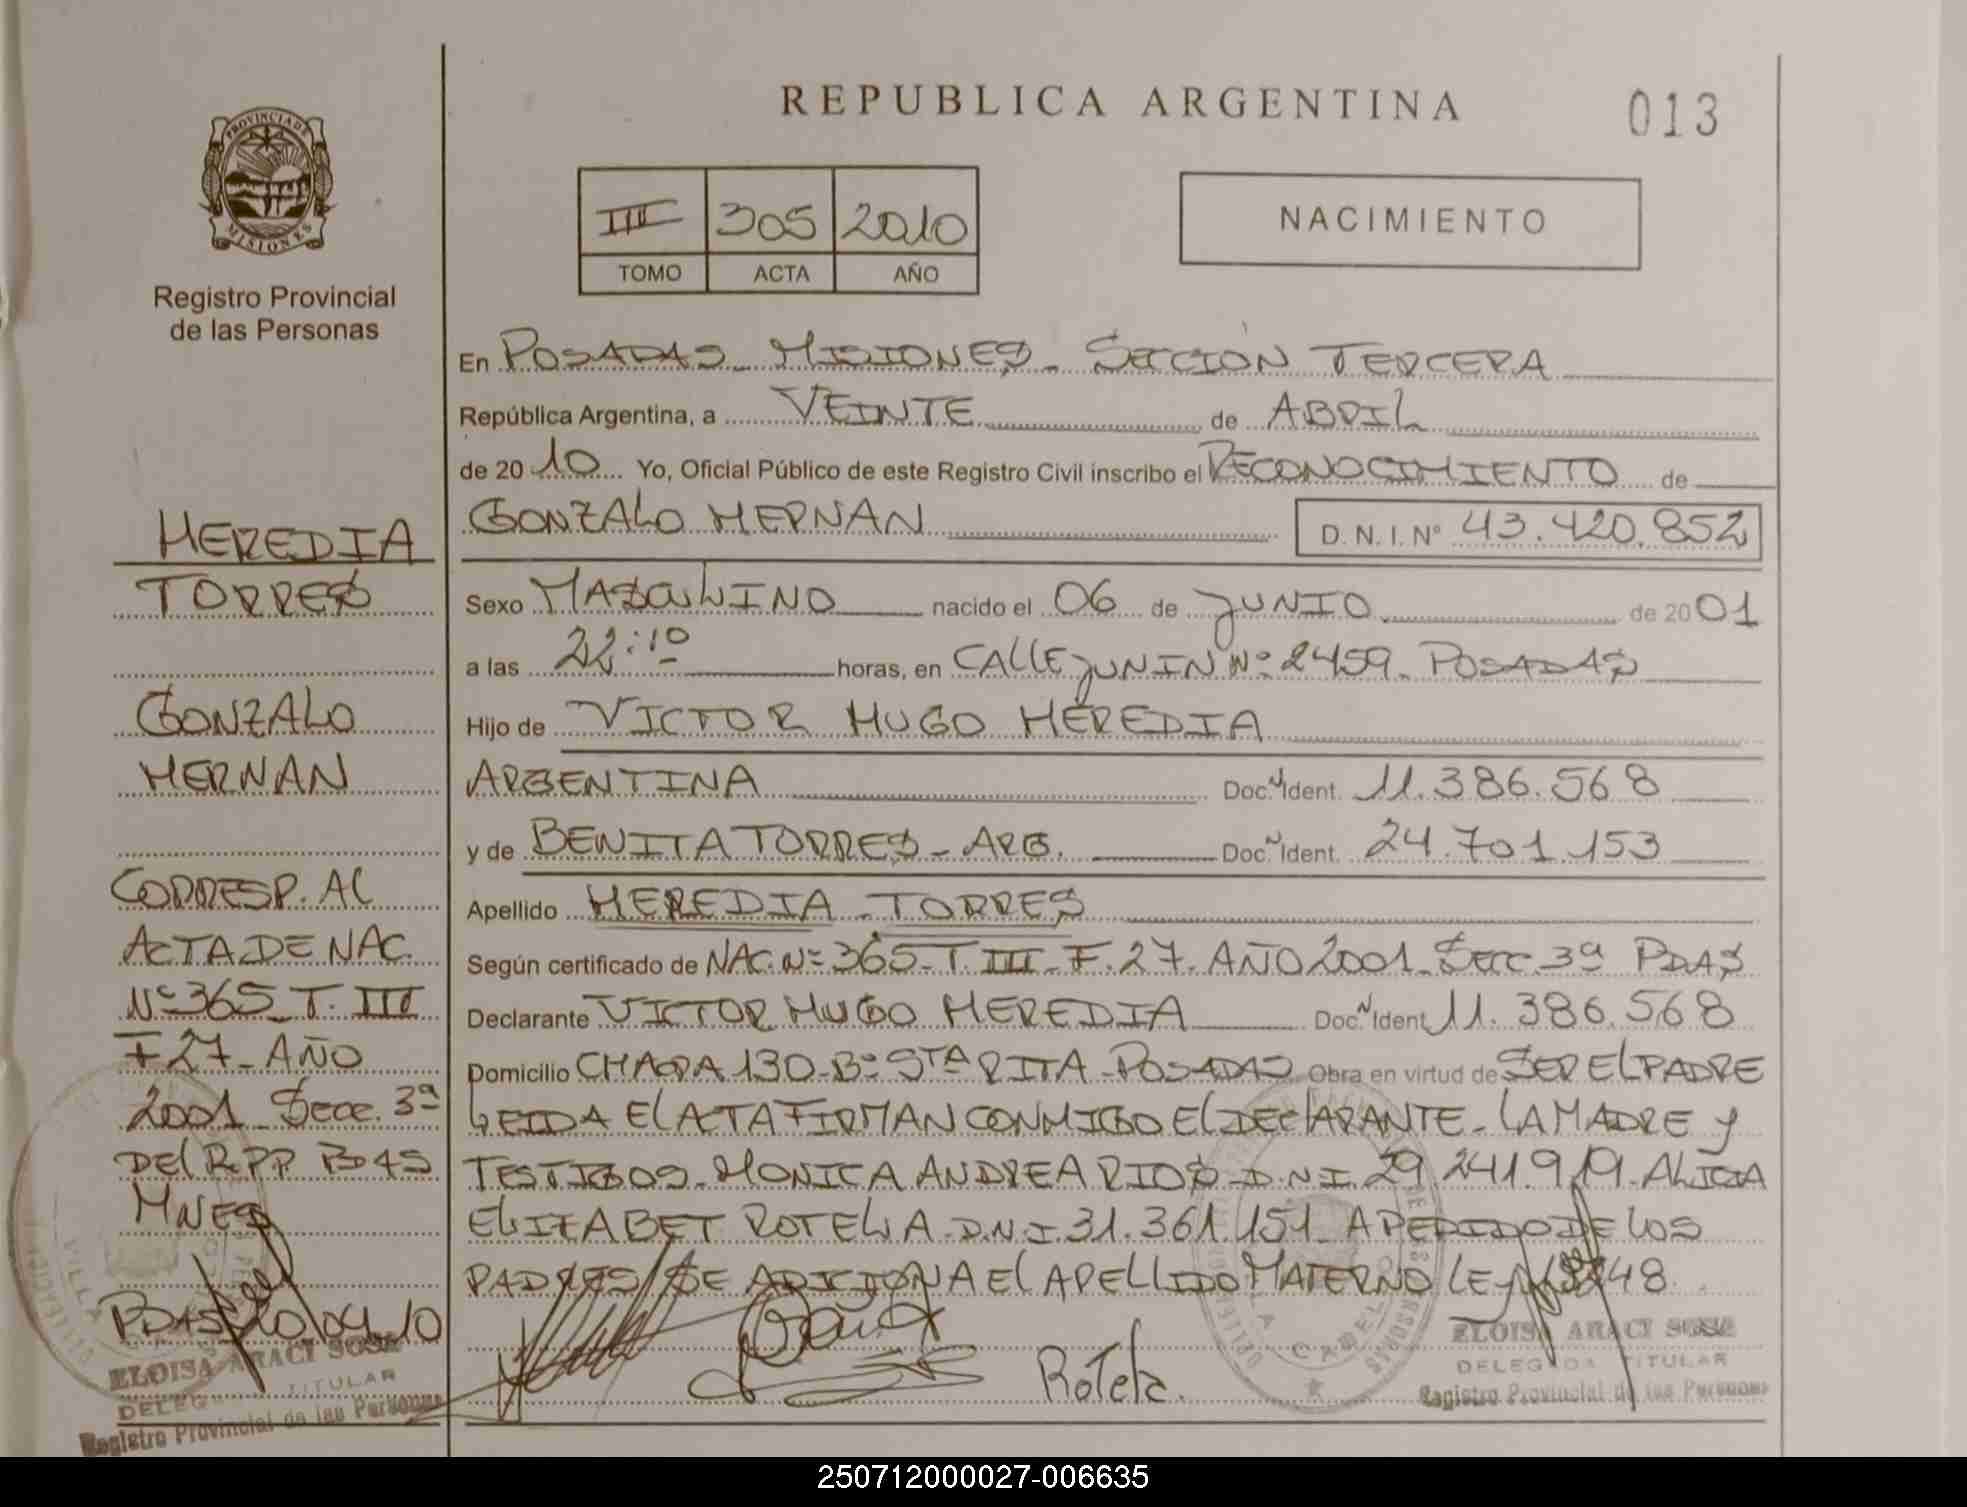 REPUBLICA ARGENTINA
013
PROVINCIA DE
MISIONES
Registro Provincial
de las Personas
III 305 2010
TOMO ACTA AÑO
NACIMIENTO
En POSADAS - MISIONES - SECCION TERCERA
República Argentina, a VEINTE de ABRIL
de 2010 Yo, Oficial Público de este Registro Civil inscribo el RECONOCIMIENTO de
GONZALO HERNAN D.N.I. Nº 43.420.852
Sexo MASCULINO nacido el 06 de JUNIO de 2001
a las 22:10 horas, en CALLE JUNIN Nº 2459 - POSADAS
Hijo de VICTOR HUGO HEREDIA
ARGENTINA Doc. N Ident. 11.386.568
y de BENITA TORRES - ARG. Doc. N Ident. 24.701.153
Apellido HEREDIA - TORRES
Según certificado de NAC. Nº 365 - T. III - F. 27 - AÑO 2001 - SECC. 3ª PDAS
Declarante VICTOR HUGO HEREDIA Doc. N Ident 11.386.568
Domicilio CHACRA 130 - Bº STA RITA - POSADAS Obra en virtud de SER EL PADRE
LEIDA EL ACTA FIRMAN CONMIGO EL DECLARANTE - LA MADRE Y
TESTIGOS - MONICA ANDREA RIOS D.N.I. 29.241.919 - ALICIA
ELIZABET ROTELA D.N.I. 31.361.151 - A PEDIDO DE LOS
PADRES SE ADICIONA EL APELLIDO MATERNO LEY
Rotela.
ELOISA ARACI SOSA
DELEGADA TITULAR
Registro Provincial de las Personas
HEREDIA
TORRES
GONZALO
HERNAN
CORRESP. AL
ACTA DE NAC.
Nº 365 - T. III
F 27 - AÑO
2001 - Secc. 3ª
DEL R.P.P. PDAS
MNES
PDAS 20/04/10
ELOISA ARACI SOSA
TITULAR
Registro Provincial de las Personas
250712000027-006635